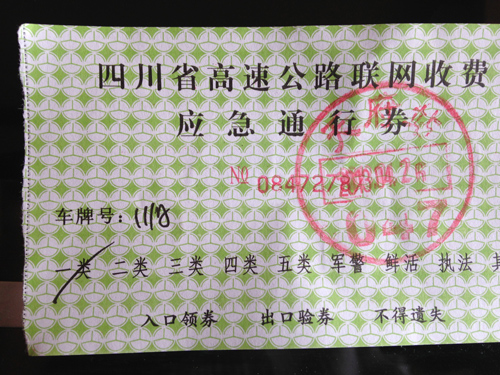 四川省高速公路联网收费
应急通行券
天府
№ 0847278
2013.04.26
047
车牌号：1118
一类 二类 三类 四类 五类 军警 鲜活 执法 其
入口领券 出口验券 不得遗失